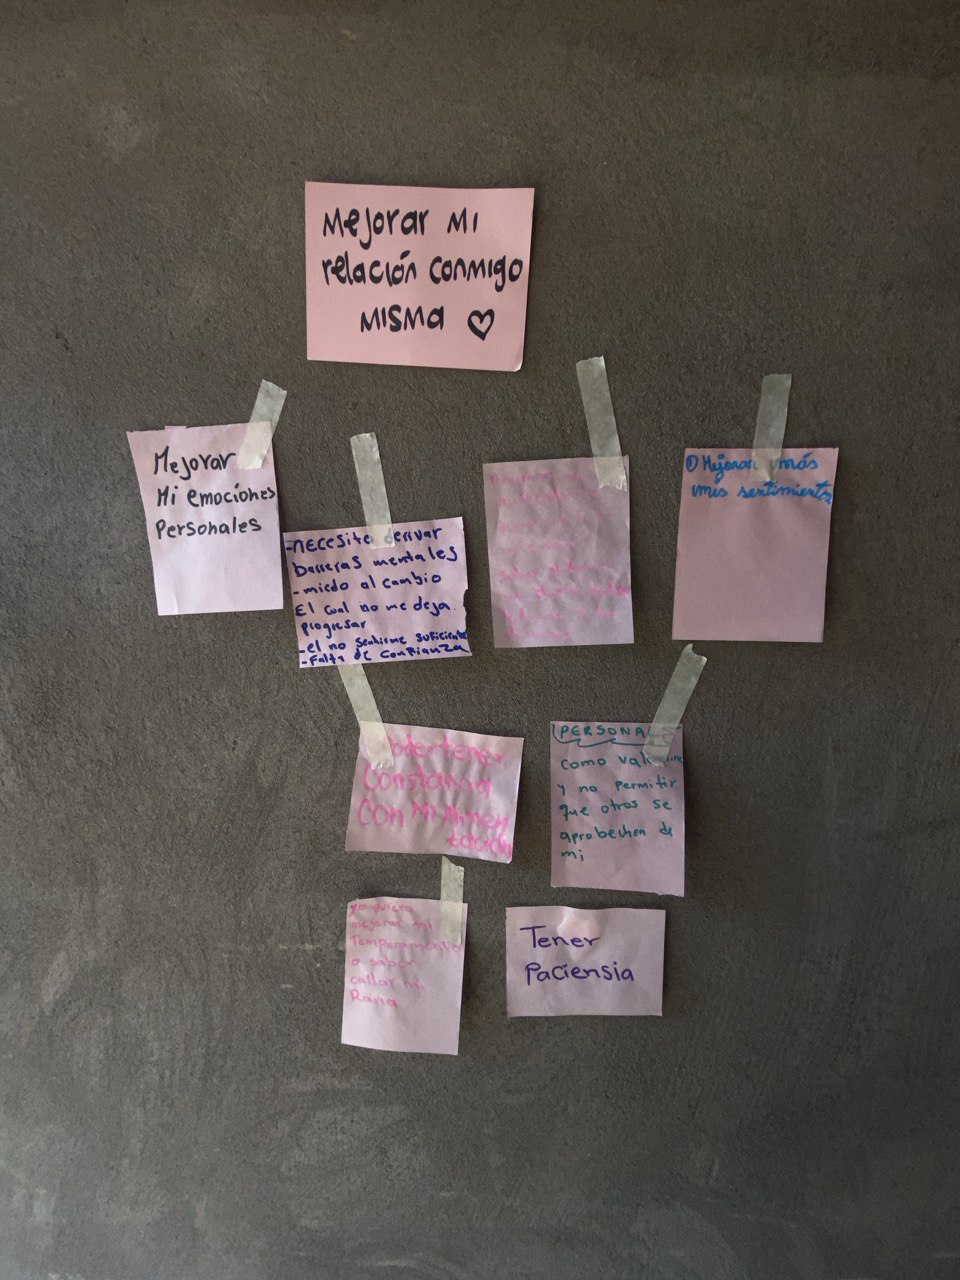 Mejorar Mi
relación conmigo
misma
Mejorar
Mi emociones
Personales
-necesito derivar
barreras mentales
-miedo al cambio
El cual no me deja
progresar
-el no sentirme suficiente
-Falta de confianza
① Mejorar más
mis sentimientos
Poder tener
Constancia
Con Mi Alimen
tación
PERSONA
como
y no permitir
que otros se
aprobechen de
mi
yo quiero
mejorar mi
Temperamento
a saber
callar mi
Rabia
Tener
Paciensia